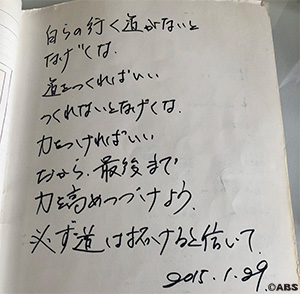 自らの行く道がないと
なげくな.
道をつくればいい
つくれないとなげくな.
力をつければいい
だから、最後まで
力を高めつづけよう.
必ず道は拓けると信いて.
2015.1.29
©ABS